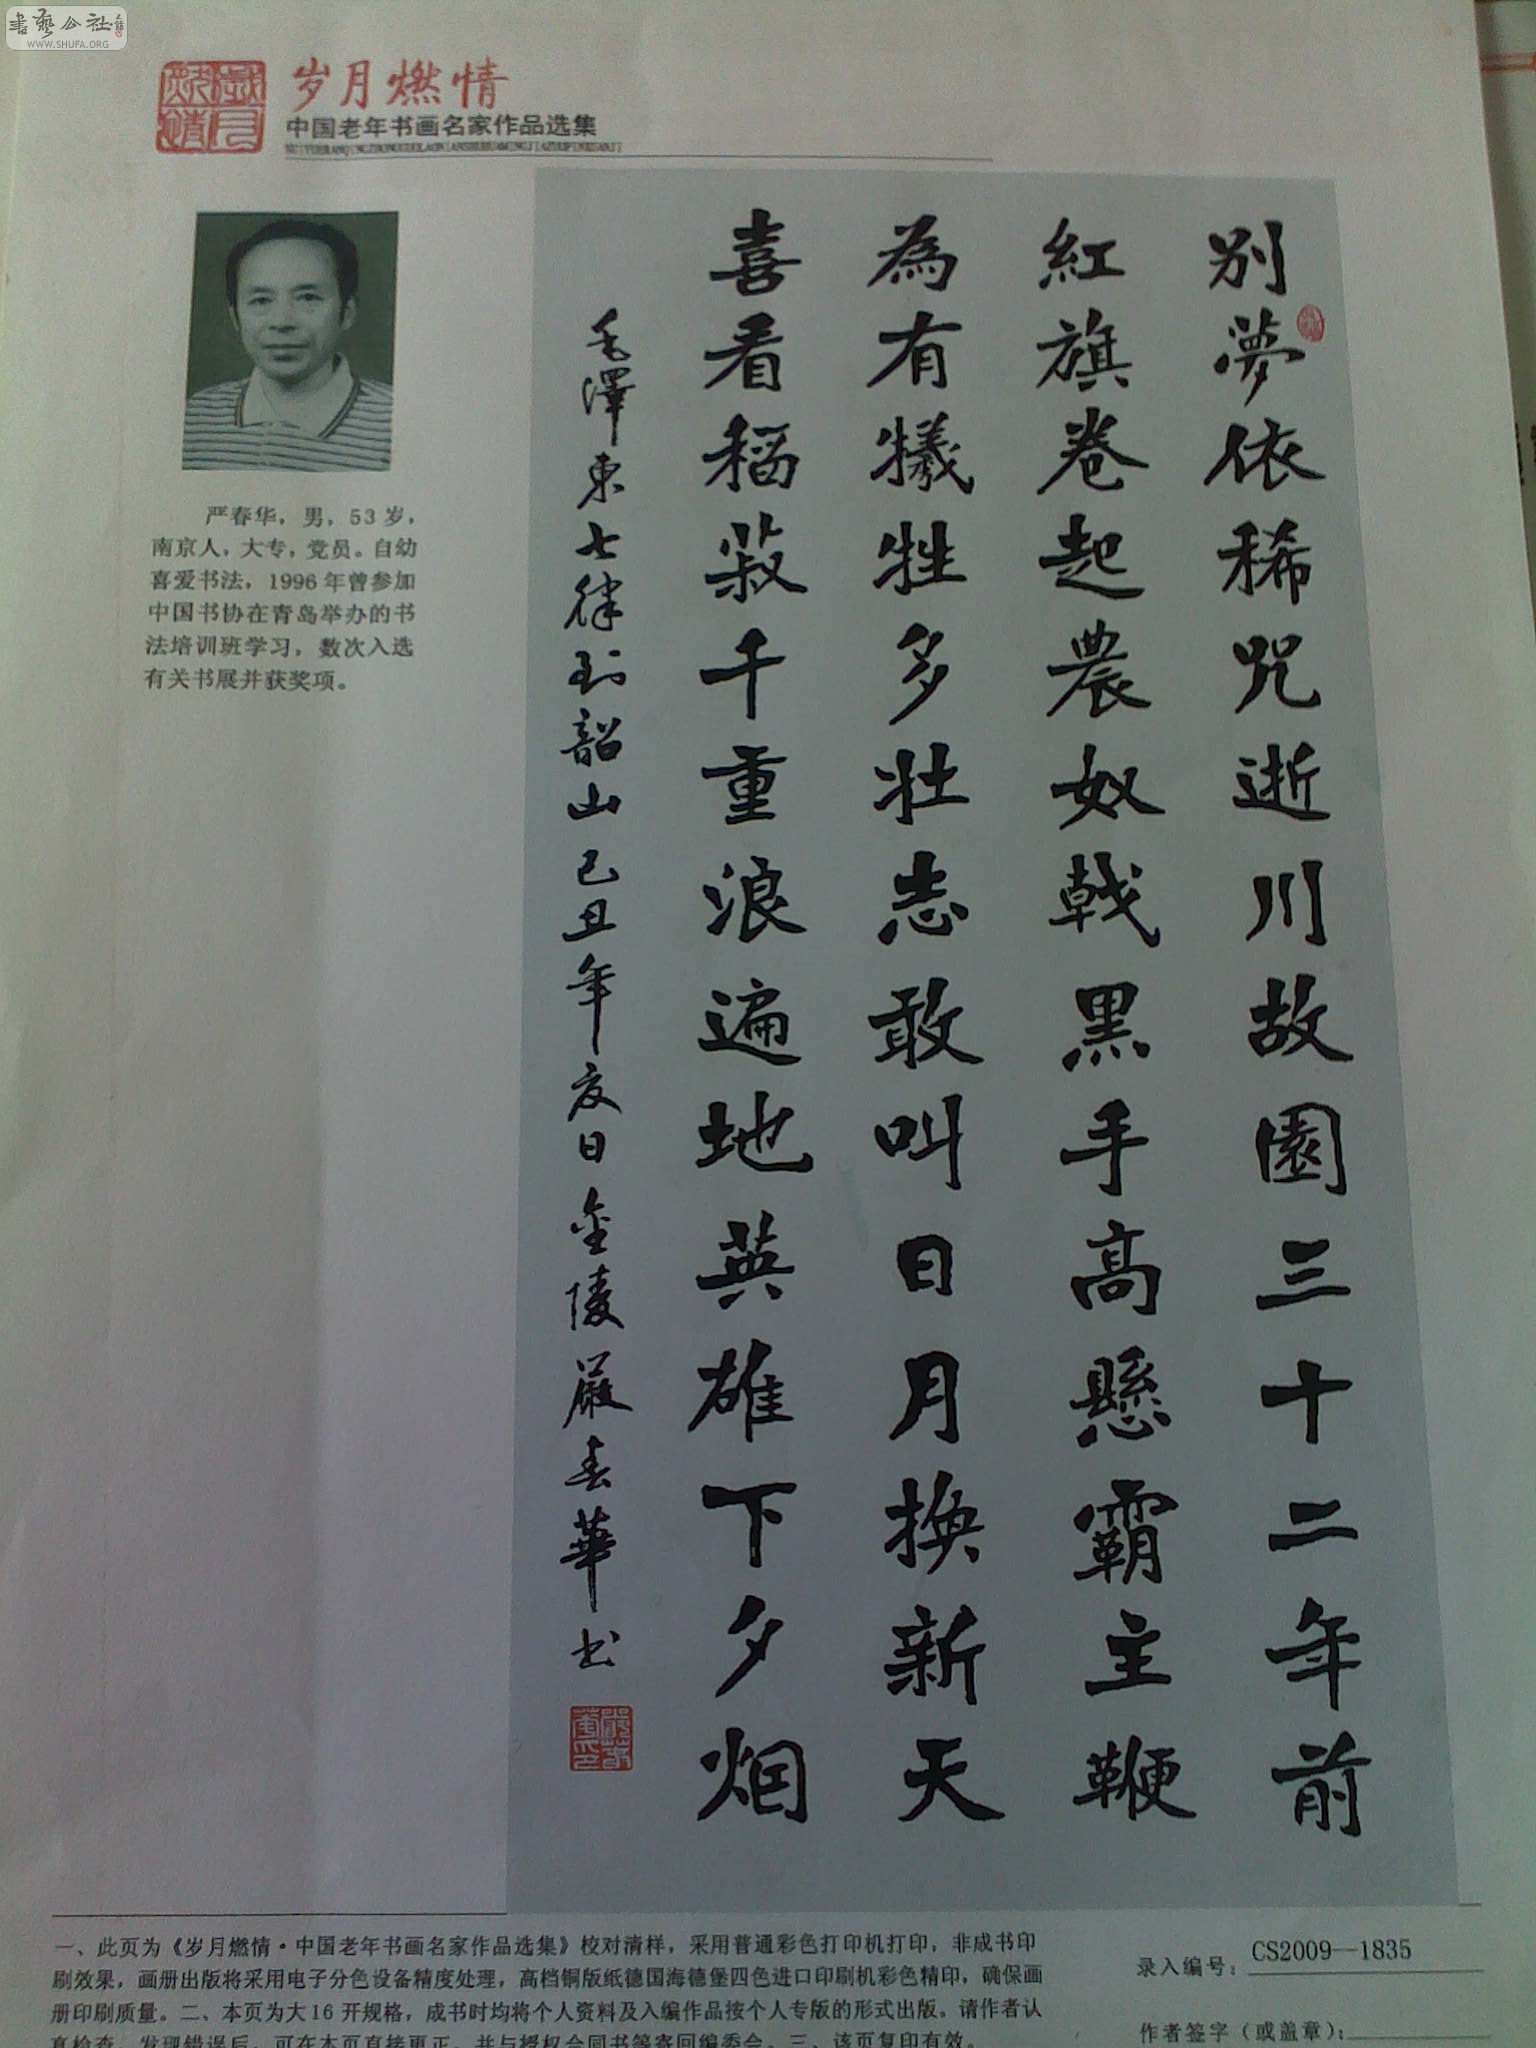 書藝公社
WWW.SHUFA.ORG
岁月燃情
岁月燃情
中国老年书画名家作品选集
严春华，男，53岁，
南京人，大专，党员。自幼
喜爱书法，1996年曾参加
中国书协在青岛举办的书
法培训班学习，数次入选
有关书展并获奖项。
别夢依稀咒逝川故園三十二年前
紅旗卷起農奴戟黑手高懸霸主鞭
為有犧牲多壮志敢叫日月換新天
喜看稻菽千重浪遍地英雄下夕烟
毛澤東七律到韶山己丑年夏日金陵嚴春華书
一、此页为《岁月燃情·中国老年书画名家作品选集》校对清样，采用普通彩色打印机打印，非成书印
刷效果，画册出版将采用电子分色设备精度处理，高档铜版纸德国海德堡四色进口印刷机彩色精印，确保画
册印刷质量。二、本页为大16开规格，成书时均将个人资料及入编作品按个人专版的形式出版。请作者认
真检查，发现错误后，可在本页直接更正，并与授权合同书等寄回编委会。三、该页复印有效。
录入编号：CS2009—1835
作者签字（或盖章）：